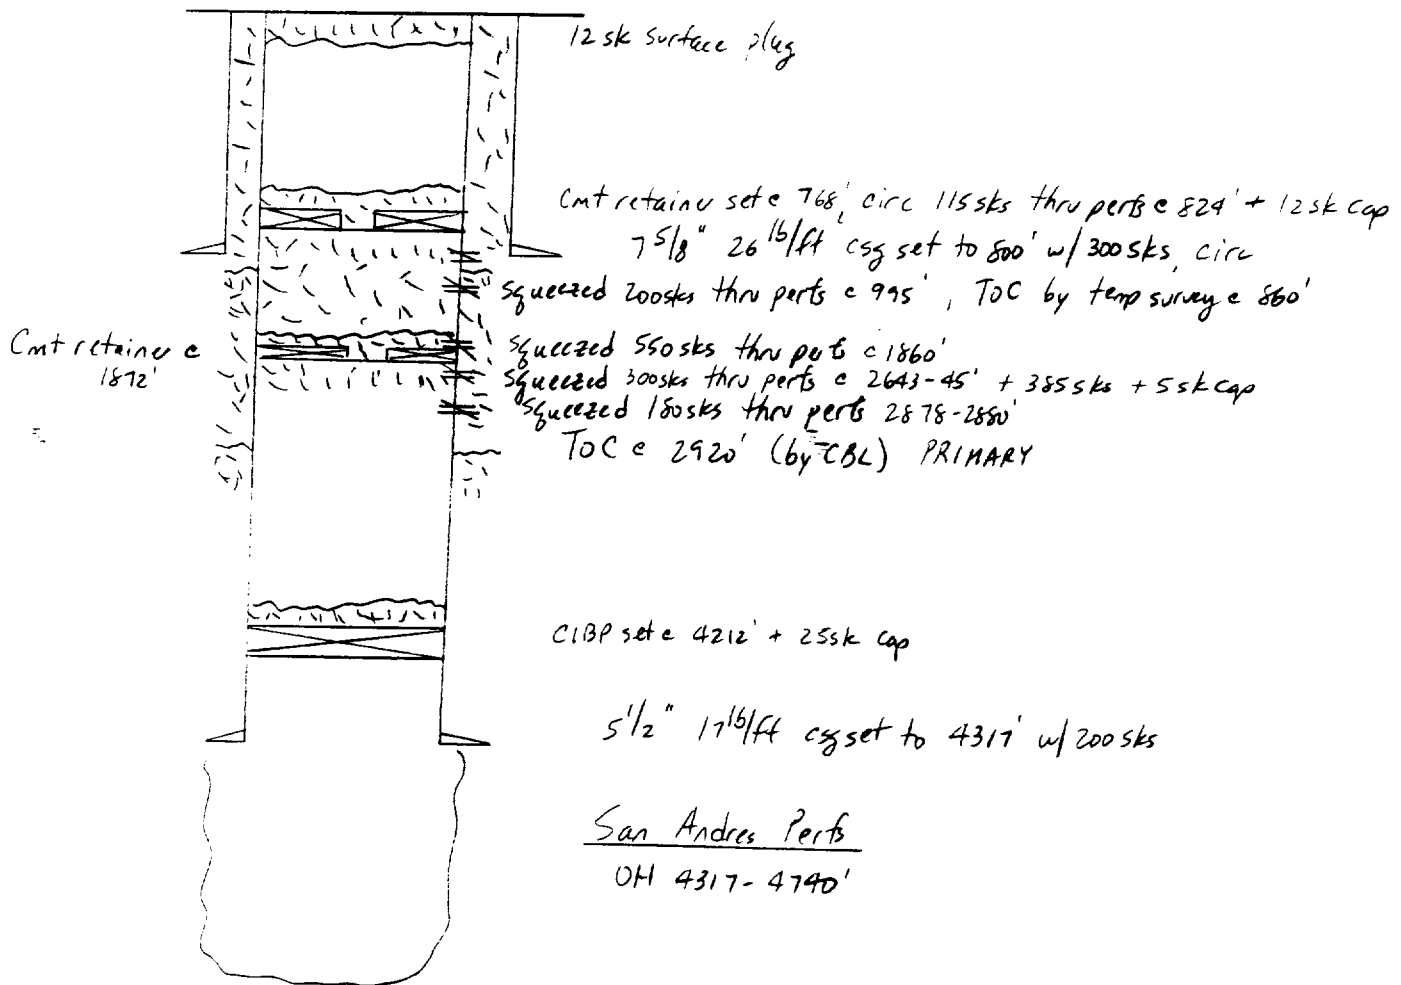 12 sk surface plug
Cmt retainer set @ 768', circ 115 sks thru perfs @ 824' + 12 sk cap
7 5/8" 26 lb/ft csg set to 800' w/ 300 sks, circ
squeezed 200 sks thru perfs @ 995', TOC by temp survey @ 860'
Cmt retainer @
1872'
squeezed 550 sks thru perfs @ 1860'
squeezed 300 sks thru perfs @ 2643-45' + 385 sks + 5 sk cap
squeezed 180 sks thru perfs 2878-2880'
TOC @ 2920' (by CBL) PRIMARY
CIBP set @ 4212' + 25 sk cap
5 1/2" 17 lb/ft csg set to 4317' w/ 200 sks
San Andres Perfs
OH 4317-4740'